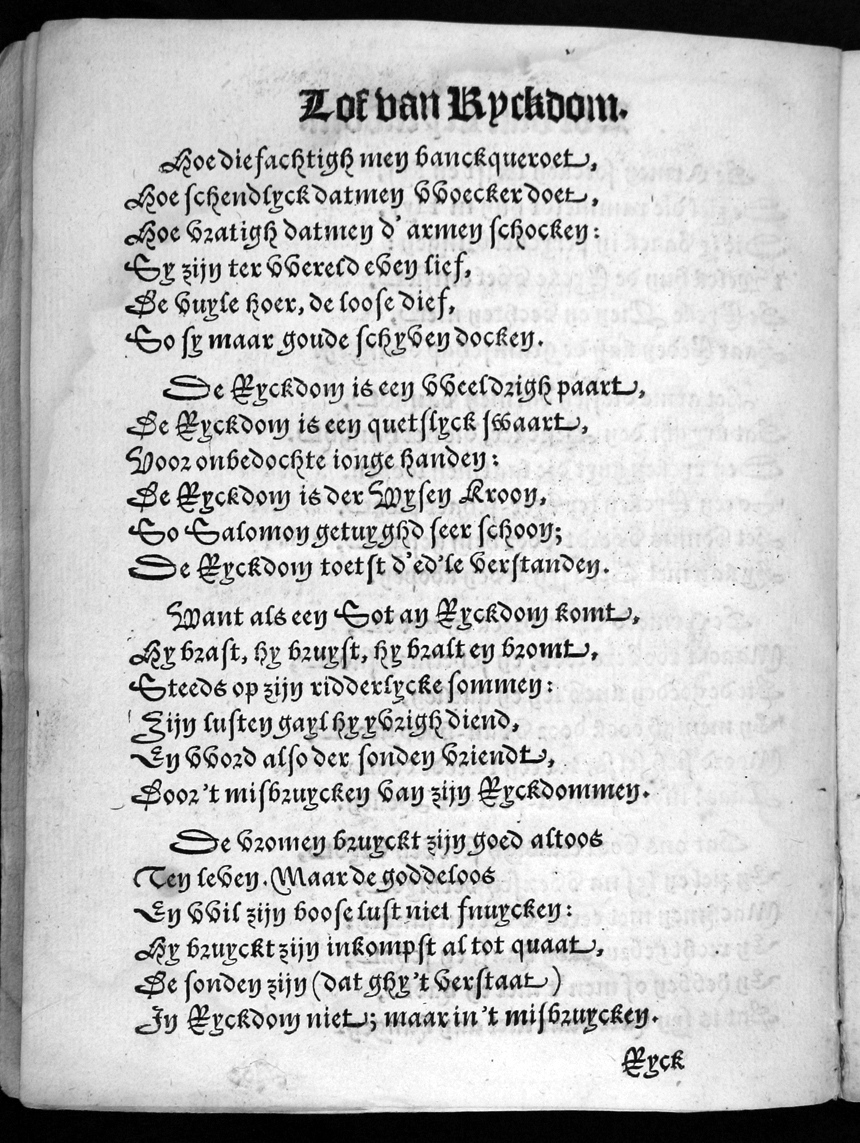 Lof van Ryckdom.
Hoe diefachtigh men banckqueroet,
Hoe schendlyck datmen vvoecker doet,
Hoe vratigh datmen d'armen schocken:
Sy zijn ter vvereld even lief,
De vuyle hoer, de loose dief,
So sy maar goude schyven docken.
De Ryckdom is een vveeldrigh paart,
De Ryckdom is een quetslyck swaart,
Voor onbedochte ionge handen:
De Ryckdom is der Wysen Kroon,
So Salomon getuyghd seer schoon;
De Ryckdom toetst d'ed'le verstanden.
Want als een Sot an Ryckdom komt,
Hy brast, hy bruyst, hy bralt en bromt,
Steeds op zijn ridderlycke sommen:
Zijn lusten gayl hy yvrigh diend,
En vvord also der sonden vriendt,
Door 't misbruycken van zijn Ryckdommen.
De vromen bruyckt zijn goed altoos
Ten leven. Maar de goddeloos
En vvil zijn boose lust niet snuycken:
Hy bruyckt zijn inkompst al tot quaat,
De sonden zijn (dat ghy't verstaat)
In Ryckdom niet; maar in't misbruycken.
Ryck